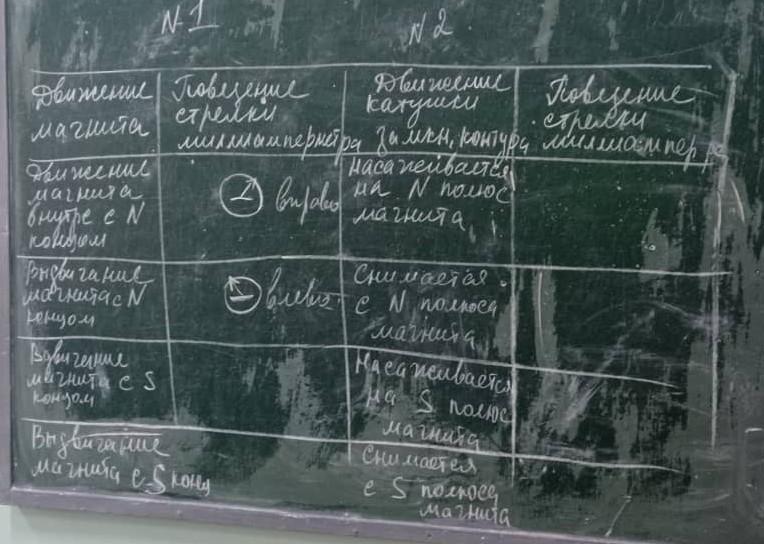 N 1
N 2
Движение
магнита
Поведение
стрелки
миллиамперметра
Движение
катушки
замкн. контура
Поведение
стрелки
миллиампер
Движение
магнита
внутрь с N
концом
вправо
насаживается
на N полюс
магнита
Выдвигание
магнита с N
концом
влево
Снимается
с N полюса
магнита
Вдвигание
магнита с S
концом
Насаживается
на S полюс
магнита
Выдвигание
магнита с S конц
Снимается
с S полюса
магнита